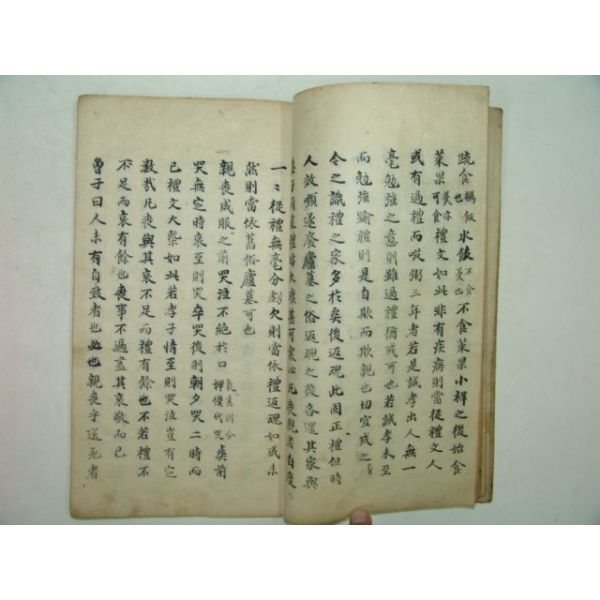 疏食糲飯也水飮不食羹也不食菜果小祥之後始食
菜果羹亦可食禮文如此非有疾病則當從禮文人
或有過禮而啜粥三年者若是誠孝出人無一
毫勉强之意則雖過禮猶或可也若誠孝未至
而勉强踰禮則是自欺而欺親也切宜戒之
今之識禮之家多於葬後返魂此固正禮但時
人效顰遂廢廬墓之俗返魂之後各還其家與
妻子同處禮坊大壞甚可寒心凡喪親者自度
一一從禮無毫分虧欠則當依禮返魂如或未
然則當依舊俗廬墓可也
親喪成服之前哭泣不絶於口氣盡則令婢僕代哭葬前
哭無定時哀至則哭卒哭後則朝夕哭二時而
已禮文大槩如此若孝子情至則哭泣豈有定
數哉凡喪與其哀不足而禮有餘也不若禮不
不足而哀有餘也喪事不過盡其哀敬而已
曾子曰人未有自致者也必也親喪乎送死者